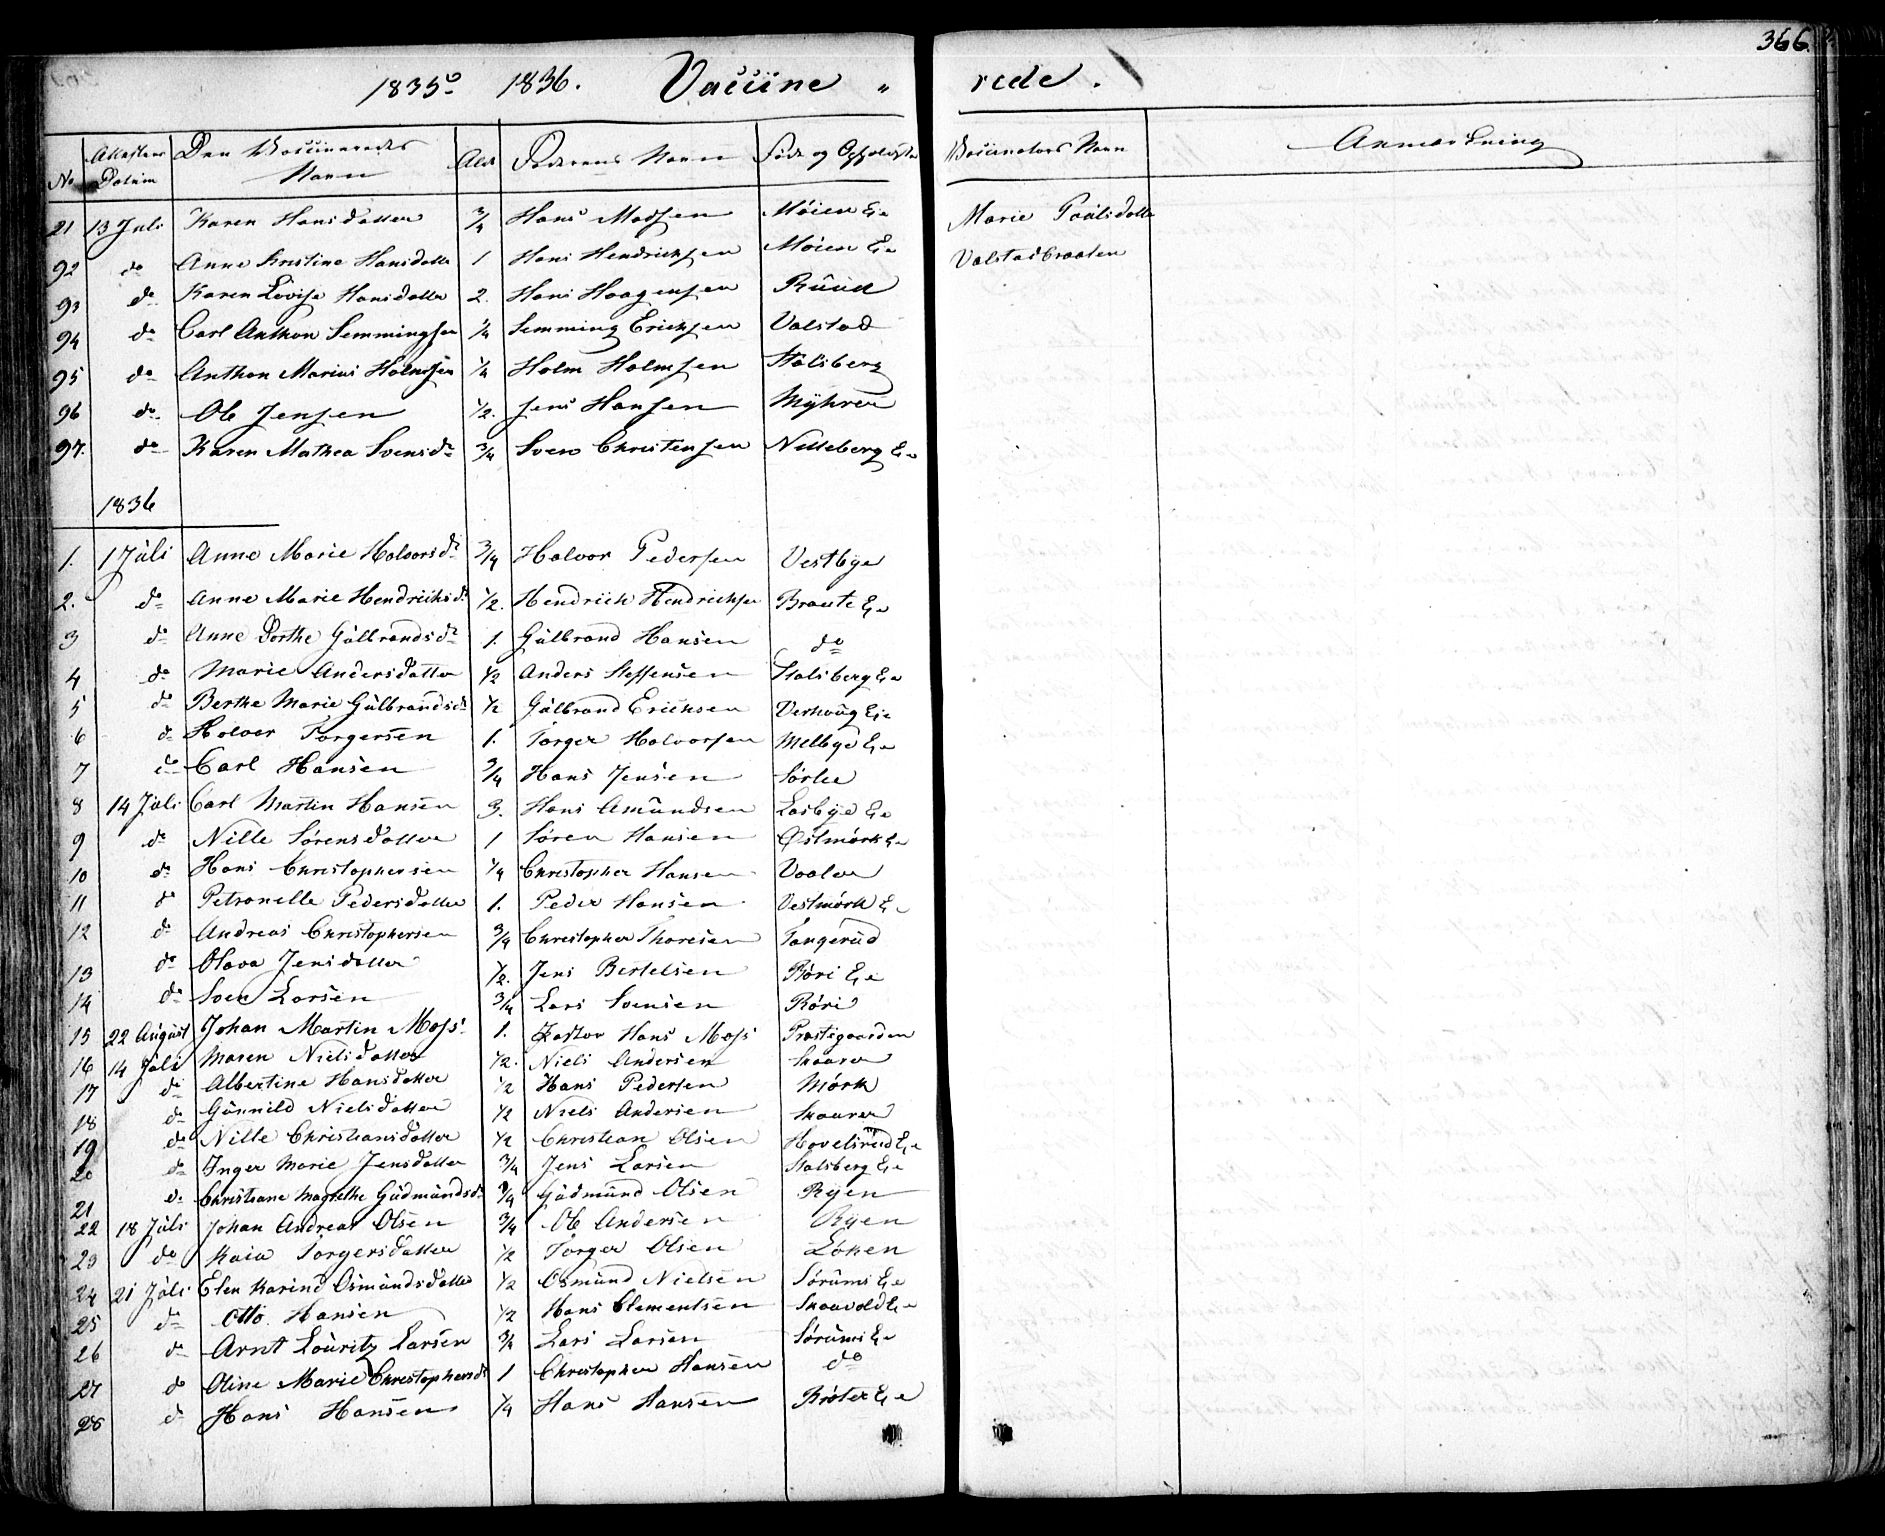 366.
1835 1836. Vaccine „ rede.
No Attestens Datum Den Vaccineredes Navn Alder Faderens Navn Føde og Opholdssted Vaccinateurs Navn Anmærkning
21 13 Juli Karen Hansdatter 3/4 Hans Madsen Møien Eie Marie Paalsdatter
92 do Anne Kristine Hansdatter 1 Hans Hendrichsen Møien Eie Valstadbraaten
93 do Karen Lovise Hansdatter 2. Hans Haagensen Ruud
94 do Carl Anthon Semmingsen 1/4 Semming Erichsen Valstad
95 do Anthon Marius Holmsen 1/4 Holm Holmsen Stalsberg
96 do Ole Jensen 1/2. Jens Hansen Myhrer
97. do Karen Mathea Svensdr 3/4 Sven Christensen Nilleberg Eie
1836
1. 1 Juli Anne Marie Halvorsdr 3/4 Halvor Pedersen Vestbye
2. do Anne Marie Hendrichsdr 1/2. Hendrich Hendrichsen Braate Eie
3 do Anne Dorthe Gulbrandsdr 1. Gulbrand Hansen do
4 do Marie Andersdatter 1/2 Anders Steffensen Stalsberg Eie
5 do Berthe Marie Gulbrandsdr 1/2 Gulbrand Erichsen Verhaug Eie
6 do Halvor Torgersen 1. Torger Halvorsen Melbye Eie
7 do Carl Hansen 3/4 Hans Jensen Sørlie
8 14 Juli Carl Martin Hansen 3. Hans Amundsen Lasbye Eie
9 do Nille Sørensdatter 1 Søren Hansen Østmørk Eie
10 do Hans Christophersen 1/4 Christopher Hansen Vaaler
11 do Petronelle Pedersdatter 1. Peder Hansen Vestmørk Eie
12 do Andreas Christophersen 3/4 Christopher Thoresen Tangerud
13 do Olava Jensdatter 1/2. Jens Bertelsen Røri Eie
14 do Sven Larsen 3/4 Lars Svensen Røri
15 22 August Johan Martin Moss 1. Pastor Hans Moss Præstegaarden
16 14 Juli Maren Nielsdatter 1/2. Niels Andersen Skaarer
17 do Albertine Hansdatter 1/2 Hans Pedersen Mørk
18 do Gunnild Nielsdatter 1/2 Niels Andersen Skaarer
19 do Nille Christiansdatter 1/2 Christian Olsen Hovelsrud Eie
20 do Inger Marie Jensdatter 3/4 Jens Larsen Stalsberg Eie
21 do Christiane Magrethe Gudmundsdr 3/4 Gudmund Olsen Ryen
22 18 Juli Johan Andreas Olsen 3/4 Ole Andersen Ryen
23 do Kaia Torgersdatter 1/2 Torger Olsen Løken
24 21 Juli Elen Karine Osmundsdatter 1/2 Osmund Nielsen Sørums Eie
25 do Otto Hansen 1/2 Hans Clementsen Skaavold Eie
26 do Arnt Lauritz Larsen 3/4 Lars Larsen Sørums Eie
27 do Oline Marie Christophersdr 1 Christopher Hansen do
28 do Hans Hansen 1/4 Hans Hansen Brøter Eie